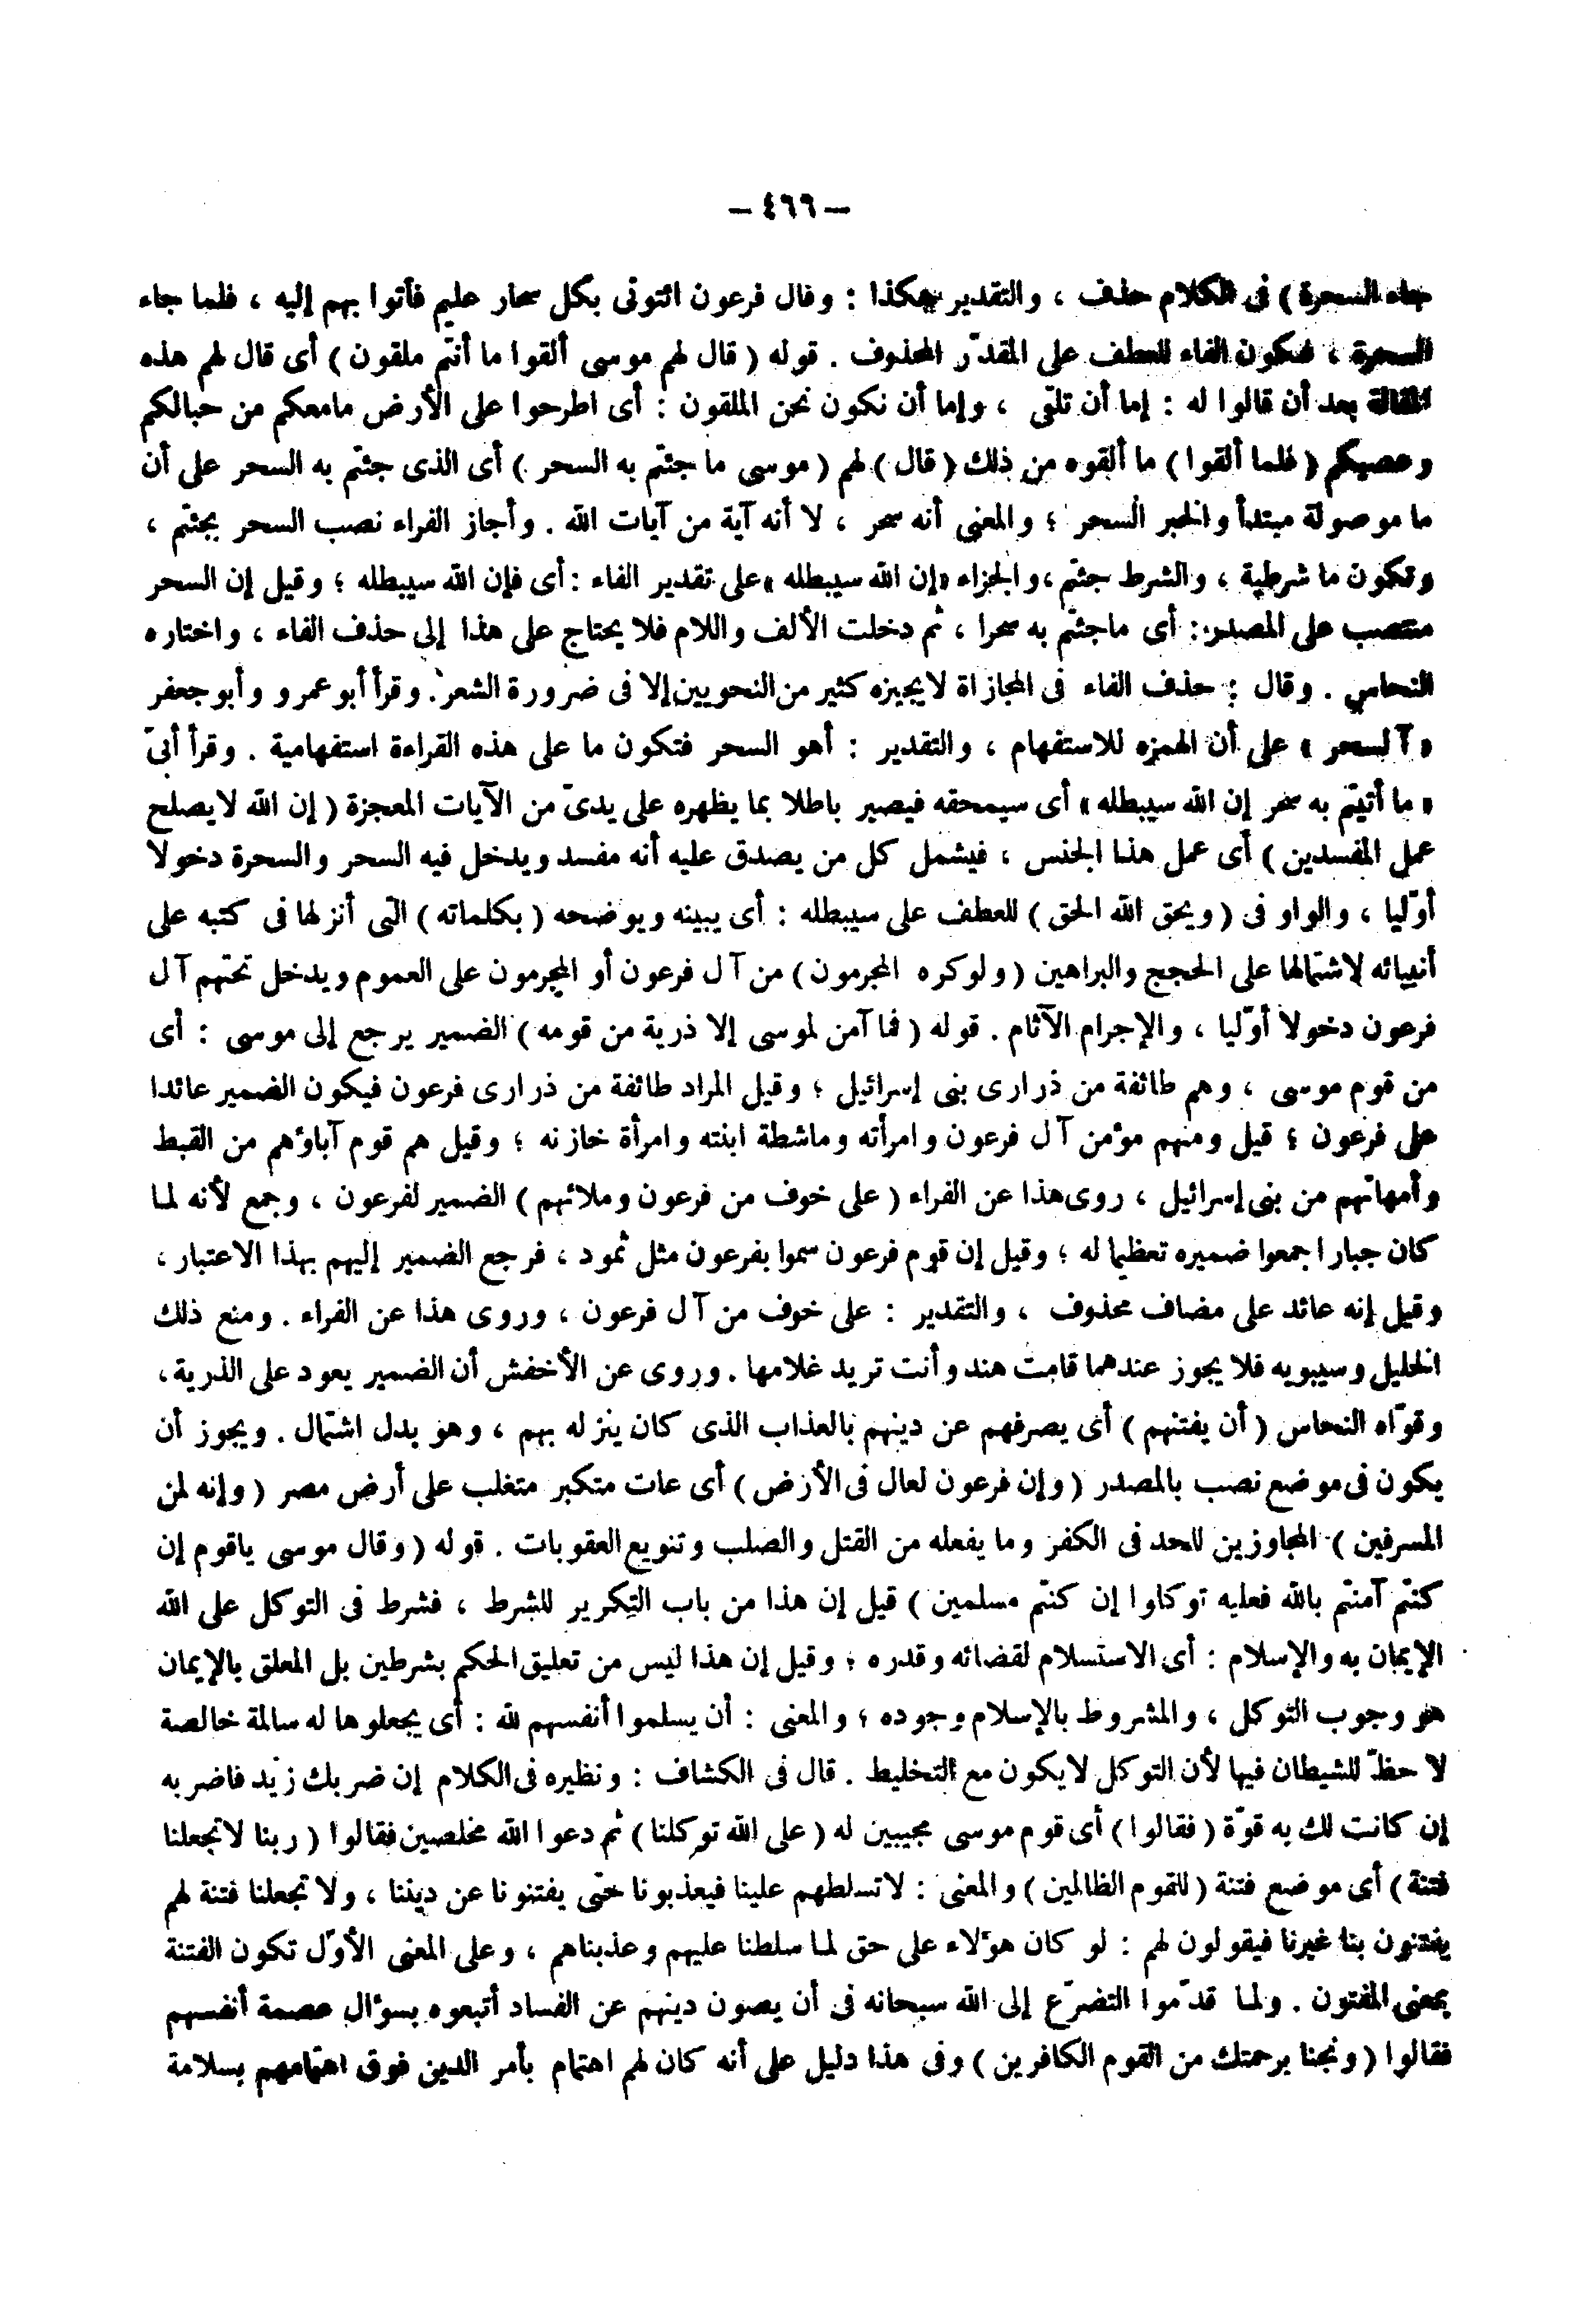 – ٤٦٦ –
جاء السحرة ) فى الكلام حذف ، والتقدير هكذا : وقال فرعون ائتونى بكل سحار عليم فأتوا بهم إليه ، فلما جاء
السحرة ، فتكون الفاء للعطف على المقدّر المحذوف . قوله ( قال لهم موسى ألقوا ما أنتم ملقون ) أى قال لهم هذه
المقالة بعد أن قالوا له : إما أن تلقى ، وإما أن نكون نحن الملقون : أى اطرحوا على الأرض مامعكم من حبالكم
وعصيكم ( فلما ألقوا ) ما ألقوه من ذلك ( قال ) لهم ( موسى ما جئتم به السحر ) أى الذى جئتم به السحر على أن
ما موصولة مبتدأ والخبر السحر ؛ والمعنى أنه سحر ، لا أنه آية من آيات الله . وأجاز الفراء نصب السحر بجئتم ،
وتكون ما شرطية ، والشرط جئتم ، والجزاء « إن الله سيبطله » على تقدير الفاء : أى فإن الله سيبطله ؛ وقيل إن السحر
منتصب على المصدر : أى ماجئتم به سحرا ، ثم دخلت الألف واللام فلا يحتاج على هذا إلى حذف الفاء ، واختاره
النحاس . وقال : حذف الفاء فى المجازاة لايجيزه كثير من النحويين إلا فى ضرورة الشعر . وقرأ أبو عمرو وأبو جعفر
« آلسحر » على أن الهمزه للاستفهام ، والتقدير : أهو السحر فتكون ما على هذه القراءة استفهامية . وقرأ أبىّ
« ما أتيتم به سحر إن الله سيبطله » أى سيمحقه فيصير باطلا بما يظهره على يدىّ من الآيات المعجزة ( إن الله لايصلح
عمل المفسدين ) أى عمل هذا الجنس ، فيشمل كل من يصدق عليه أنه مفسد ويدخل فيه السحر والسحرة دخولا
أوّليا ، والواو فى ( ويحق الله الحق ) للعطف على سيبطله : أى يبينه ويوضحه ( بكلماته ) التى أنزلها فى كتبه على
أنبيائه لاشتمالها على الحجج والبراهين ( ولوكره المجرمون ) من آل فرعون أو المجرمون على العموم ويدخل تحتهم آل
فرعون دخولا أوّليا ، والإجرام الآثام . قوله ( فما آمن لموسى إلا ذرية من قومه ) الضمير يرجع إلى موسى : أى
من قوم موسى ، وهم طائفة من ذرارى بنى إسرائيل ؛ وقيل المراد طائفة من ذرارى فرعون فيكون الضمير عائدا
على فرعون ؛ قيل ومنهم مؤمن آل فرعون وامرأته وماشطة ابنته وامرأة خازنه ؛ وقيل هم قوم آباؤهم من القبط
وأمهاتهم من بنى إسرائيل ، روى هذا عن الفراء ( على خوف من فرعون وملائهم ) الضمير لفرعون ، وجمع لأنه لما
كان جبارا جمعوا ضميره تعظيما له ؛ وقيل إن قوم فرعون سموا بفرعون مثل ثمود ، فرجع الضمير إليهم بهذا الاعتبار ،
وقيل إنه عائد على مضاف محذوف ، والتقدير : على خوف من آل فرعون ، وروى هذا عن الفراء . ومنع ذلك
الخليل وسيبويه فلا يجوز عندهما قامت هند وأنت تريد غلامها . وروى عن الأخفش أن الضمير يعود على الذرية ،
وقوّاه النحاس ( أن يفتنهم ) أى يصرفهم عن دينهم بالعذاب الذى كان ينزله بهم ، وهو بدل اشتمال . ويجوز أن
يكون فى موضع نصب بالمصدر ( وإن فرعون لعال فى الأرض ) أى عات متكبر متغلب على أرض مصر ( وإنه لمن
المسرفين ) المجاوزين للحد فى الكفر وما يفعله من القتل والصلب وتنويع العقوبات . قوله ( وقال موسى ياقوم إن
كنتم آمنتم بالله فعليه توكلوا إن كنتم مسلمين ) قيل إن هذا من باب التكرير للشرط ، فشرط فى التوكل على الله
الإيمان به والإسلام : أى الاستسلام لقضائه وقدره ؛ وقيل إن هذا ليس من تعليق الحكم بشرطين بل المعلق بالإيمان
هو وجوب التوكل ، والمشروط بالإسلام وجوده ؛ والمعنى : أن يسلموا أنفسهم لله : أى يجعلوها له سالمة خالصة
لا حظّ للشيطان فيها لأن التوكل لايكون مع التخليط . قال فى الكشاف : ونظيره فى الكلام إن ضربك زيد فاضربه
إن كانت لك به قوّة ( فقالوا ) أى قوم موسى مجيبين له ( على الله توكلنا ) ثم دعوا الله مخلصين فقالوا ( ربنا لاتجعلنا
فتنة ) أى موضع فتنة ( للقوم الظالمين ) والمعنى : لاتسلطهم علينا فيعذبونا حتى يفتنونا عن ديننا ، ولا تجعلنا فتنة لهم
يفتنون بنا غيرنا فيقولون لهم : لو كان هؤلاء على حق لما سلطنا عليهم وعذبناهم ، وعلى المعنى الأوّل تكون الفتنة
بمعنى المفتون . ولما قدّموا التضرّع إلى الله سبحانه فى أن يصون دينهم عن الفساد أتبعوه بسؤال عصمة أنفسهم
فقالوا ( ونجنا برحمتك من القوم الكافرين ) وفى هذا دليل على أنه كان لهم اهتمام بأمر الدين فوق اهتمامهم بسلامة